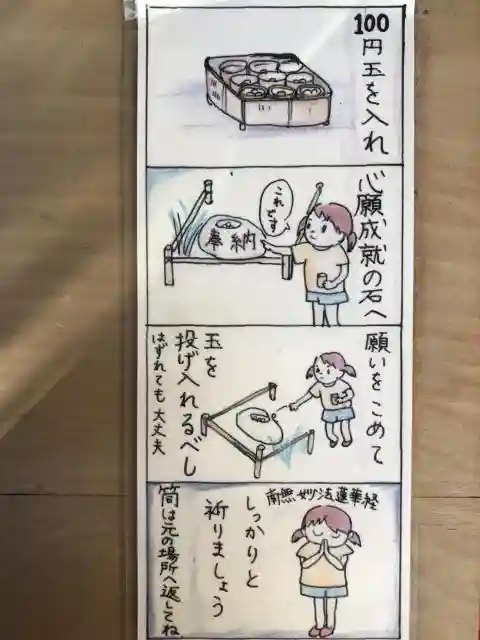 100円玉を入れ
心願成就の石へ
これです
奉納
願いをこめて
玉を
投げ入れるべし
はずれても大丈夫
南無妙法蓮華経
しっかりと
祈りましょう
筒は元の場所へ返してね